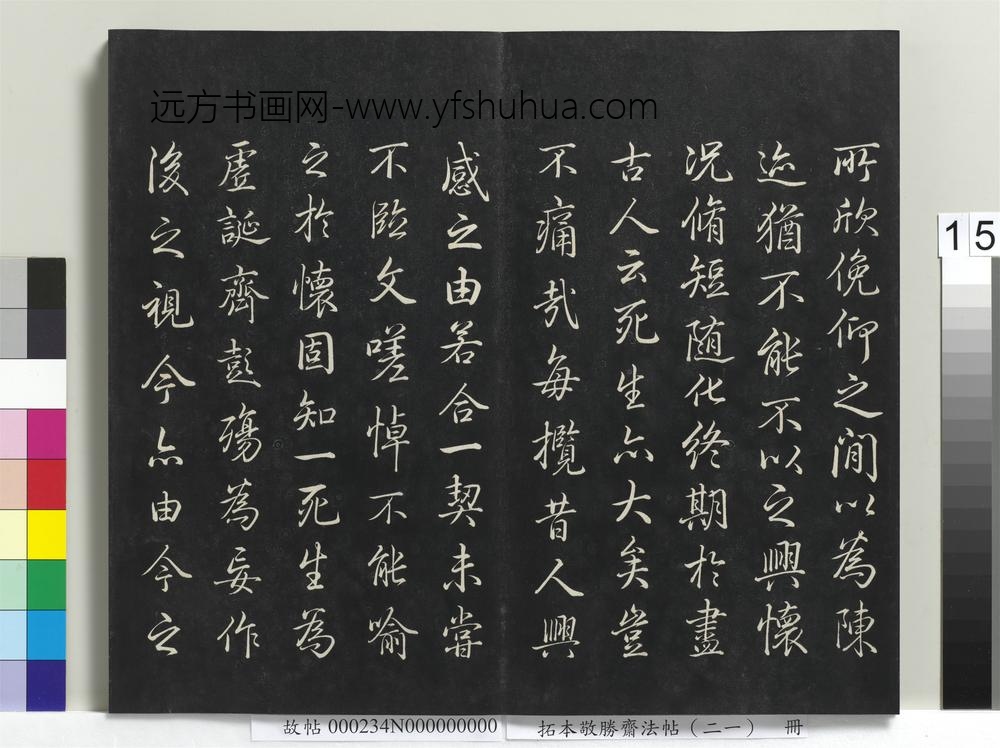 远方书画网-www.yfshuhua.com
所欣俛仰之間以為陳
迹猶不能不以之興懷
況脩短随化終期於盡
古人云死生亦大矣豈
不痛哉每攬昔人興
感之由若合一契未嘗
不臨文嗟悼不能喻
之於懷固知一死生為
虛誕齊彭殤為妄作
後之視今亦由今之
15
故帖 000234N000000000
拓本敬勝齋法帖（二一） 冊